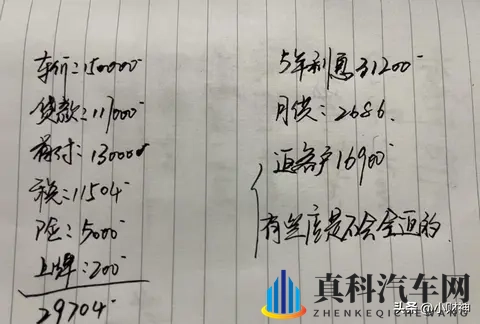 车价:150000
贷款:117000
首付:13000
税:11504
险:5000
上牌:200
29704
5年利息31200
月供:2686.
返客户16900
有些店是不会全返的
真科汽车网
ZHENKEQICHEWANG